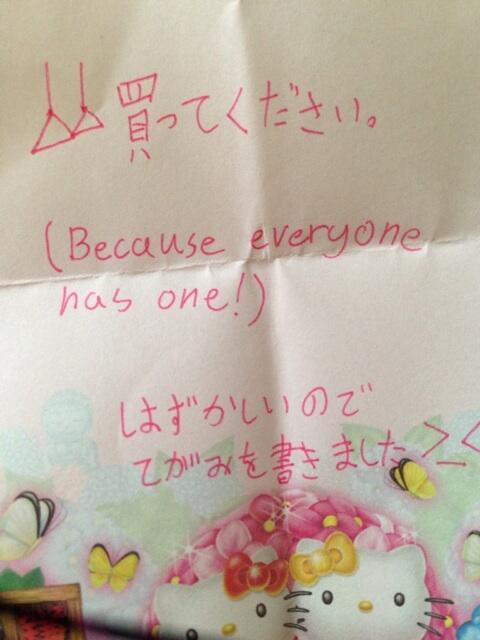 買ってください。
(Because everyone
has one!)
はずかしいので
てがみを書きました >_<